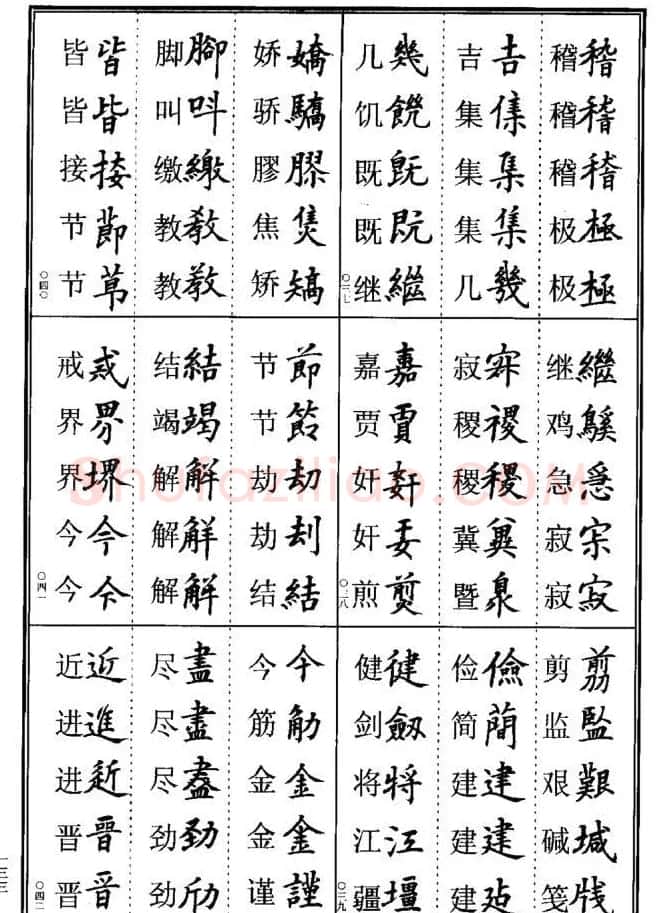 稽稽稽稽稽稽极極极極
吉吉集集集集集集几幾
几幾饥饑既既既既继繼
〇三七
继繼鸡急寂寂寂
寂稷稷稷冀冀暨
嘉嘉贾賈奸奸奸煎
〇三八
剪剪监監艰艱碱笺
俭儉简簡建建建建建
健健剑劍将將江江疆壃
〇三九
娇嬌骄驕膠膠焦矫矯
脚腳叫呌缴繳教教教教
皆皆皆皆接接节節节
〇四〇
节節节莭劫劫劫刦结結
结結竭竭解解解解解解
戒戒界界界堺今今今今
〇四一
今今筋金金金金谨謹
尽盡尽盡尽盡劲劲劲
近近进進进晋晉晋晋
〇四二
一三三
Shufaziliao.COM